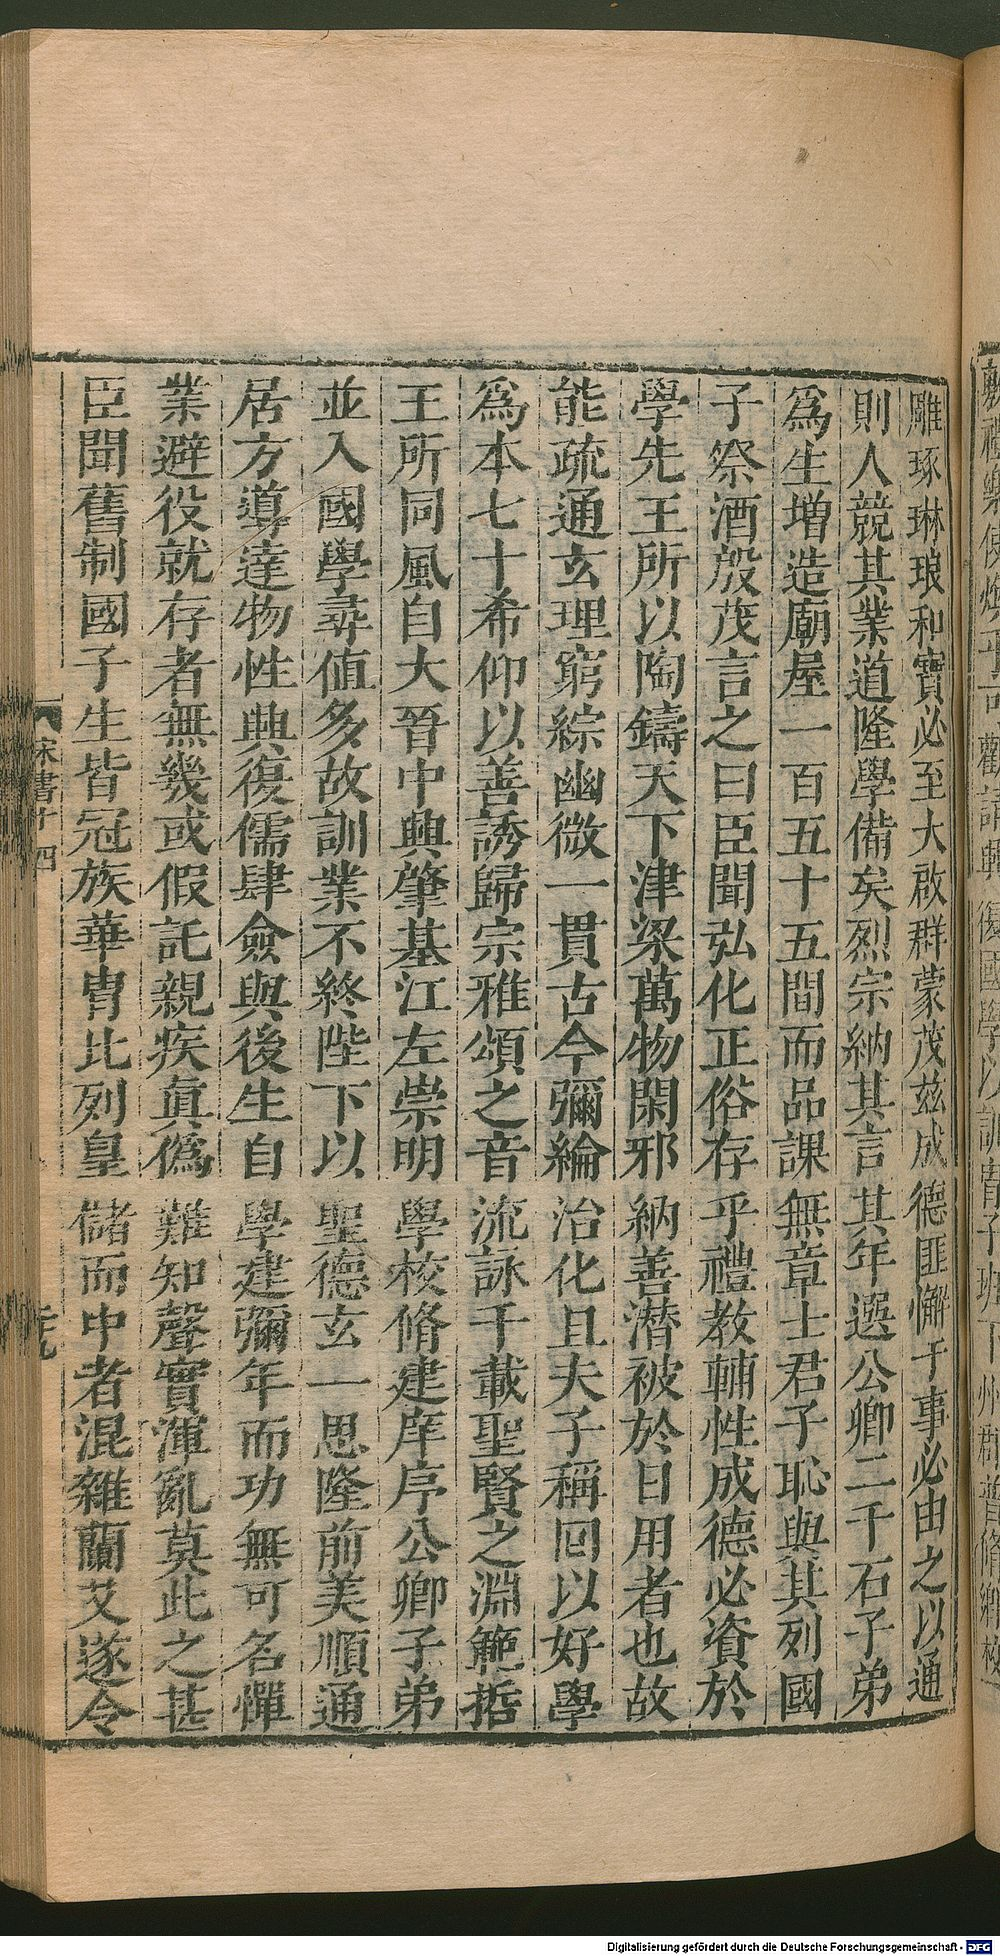 雕琢琳琅和寶必至大啟群蒙茂茲成德匪懈于事必由之以通
則人競其業道隆學備矣烈宗納其言其年選公卿二千石子弟
為生增造廟屋一百五十五間而品課無章士君子恥與其列國
子祭酒殷茂言之曰臣聞弘化正俗存乎禮教輔性成德必資於
學先王所以陶鑄天下津梁萬物閑邪納善潛被於日用者也故
能疏通玄理窮綜幽微一貫古今彌綸治化且夫子稱回以好學
為本七十希仰以善誘歸宗雅頌之音流詠千載聖賢之淵範哲
王所同風自大晉中興肇基江左崇明學校脩建庠序公卿子弟
並入國學尋值多故訓業不終陛下以聖德玄一思隆前美順通
居方導達物性興復儒肆僉與後生自學建彌年而功無可名憚
業避役就存者無幾或假託親疾真偽難知聲實渾亂莫此之甚
臣聞舊制國子生皆冠族華冑比列皇儲而中者混雜蘭艾遂令
宋書十四
Digitalisierung gefördert durch die Deutsche Forschungsgemeinschaft - DFG